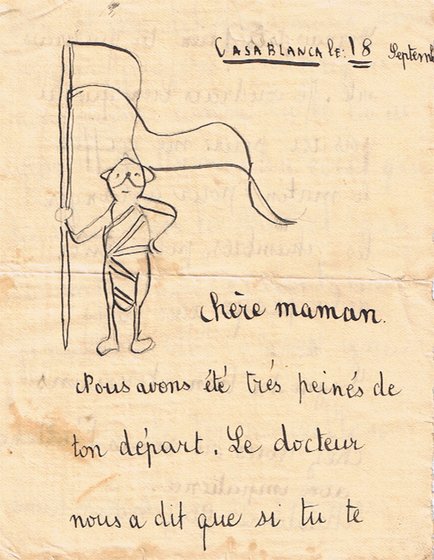 CASABLANCA le: 18 Septemb
chère maman.
Nous avons été trés peinés de
ton départ. Le docteur
nous a dit que si tu te